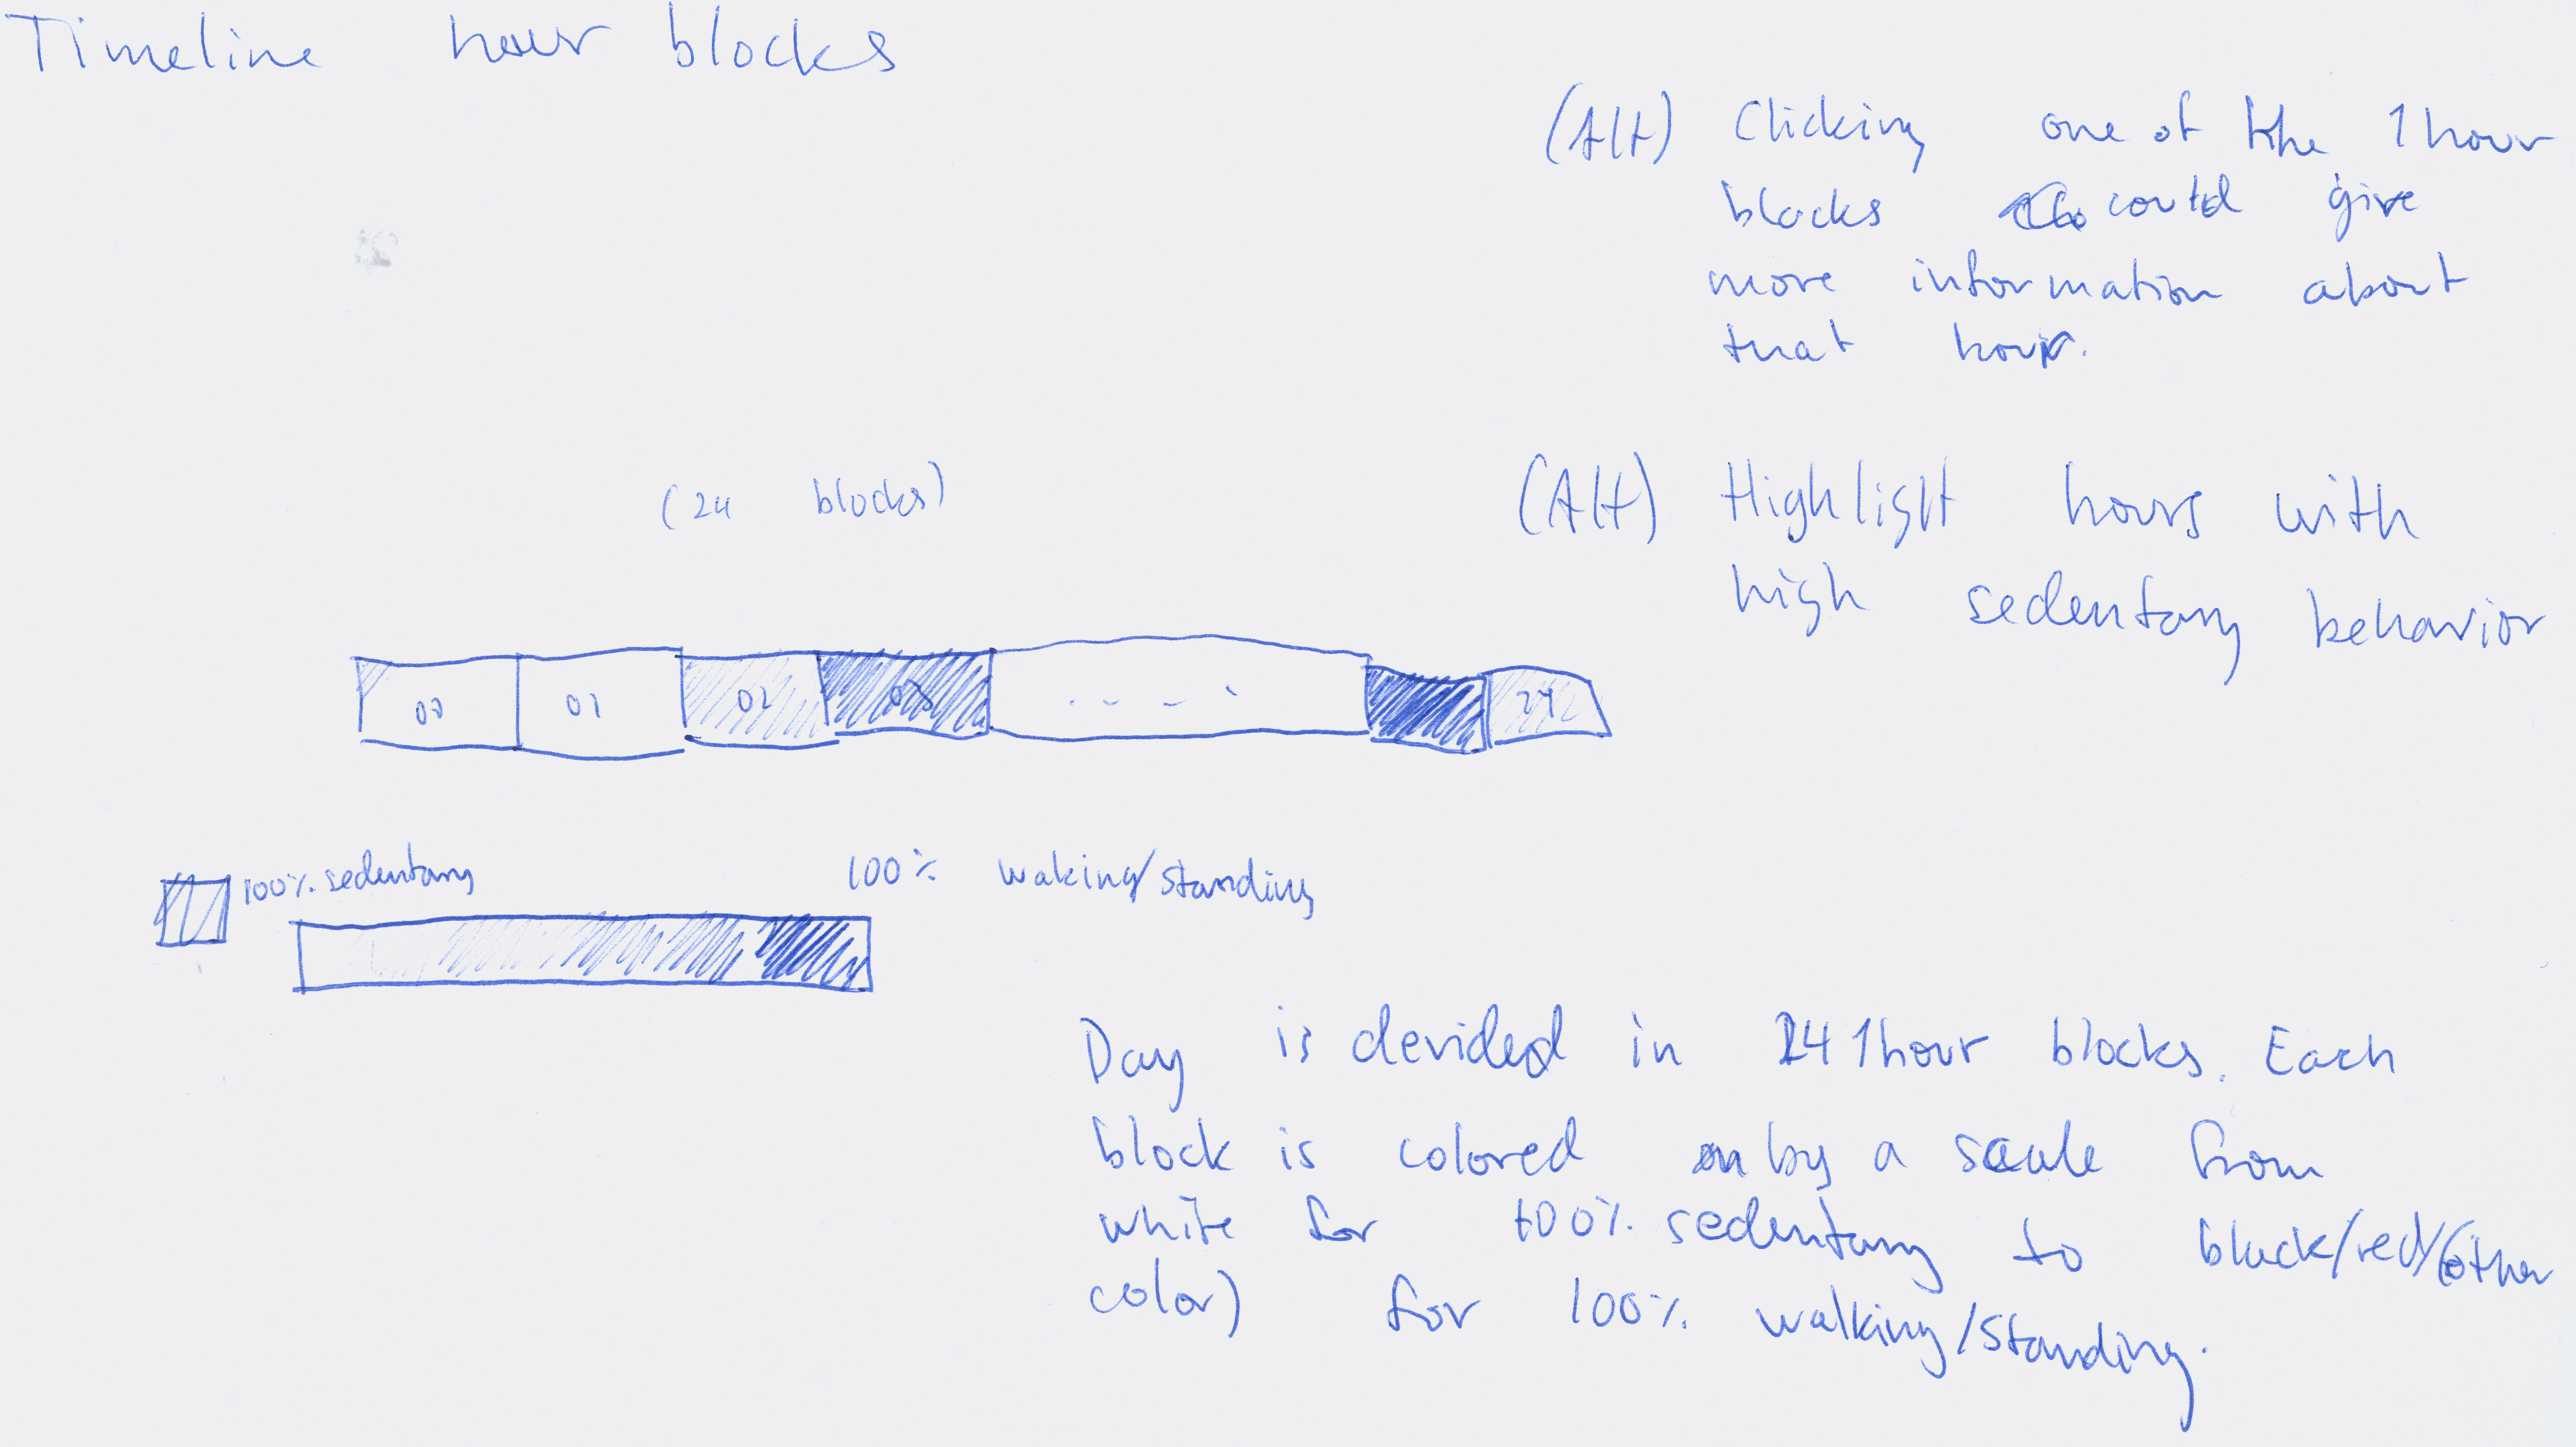 Timeline hour blocks
(Alt) Clicking one of the 1 hour
blocks could give
more information about
that hour.
(Alt) Highlight hours with
high sedentary behavior
(24 blocks)
00 01 02 03 . - - ` 24
100% sedentary 100% waking/standing
Day is devided in 24 1hour blocks. Each
block is colored by a scale from
white for 100% sedentary to black/red/(other
color) for 100% walking/standing.